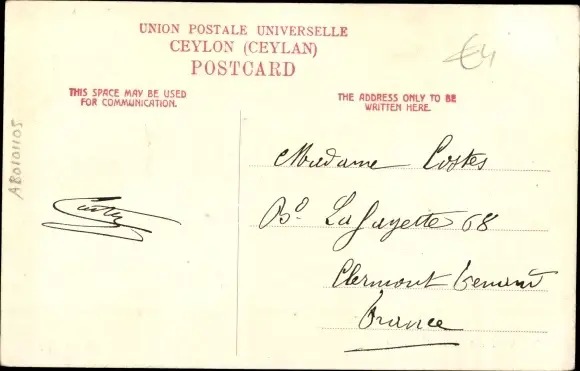 UNION POSTALE UNIVERSELLE
CEYLON (CEYLAN)
POSTCARD
THIS SPACE MAY BE USED
FOR COMMUNICATION.
THE ADDRESS ONLY TO BE
WRITTEN HERE.
€4
AB0101105
Madame Costes
Bd. La Fayette 68
Clermont Ferrand
France